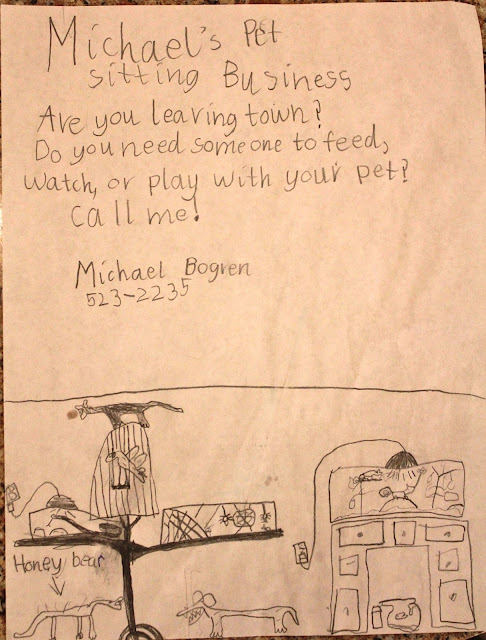 Michael's Pet
sitting Business
Are you leaving town?
Do you need someone to feed,
watch, or play with your pet?
Call me!
Michael Bogren
523-2235
Honey bear